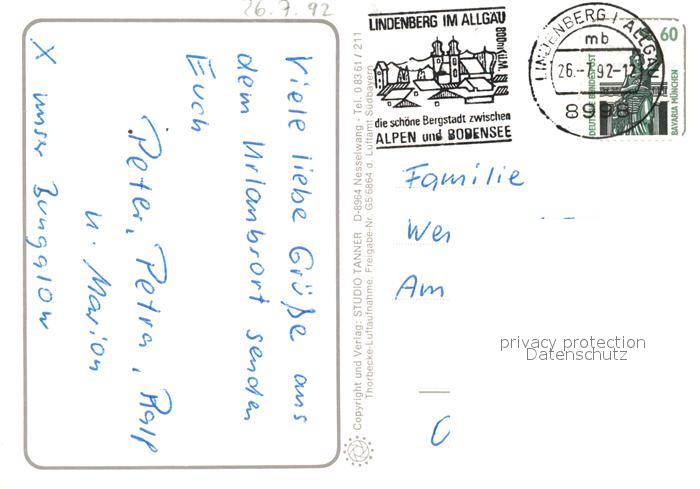 26.7.92
Viele liebe Grüße aus
dem Urlaubsort senden
Euch
Peter, Petra, Ralf
u. Marion
X unser Bungalow
Copyright und Verlag: STUDIO TANNER D-8964 Nesselwang - Tel. 0 83 61 / 211
Thorbecke-Luftaufnahme, Freigabe-Nr. G5/6864 d. Luftamt Südbayern
LINDENBERG IM ALLGÄU
800m ü.M.
die schöne Bergstadt zwischen
ALPEN und BODENSEE
LINDENBERG i ALLGÄU
mb
26.-7.92-12
8998
60
DEUTSCHE BUNDESPOST
BAVARIA MÜNCHEN
Familie
Wer
Am
privacy protection
Datenschutz